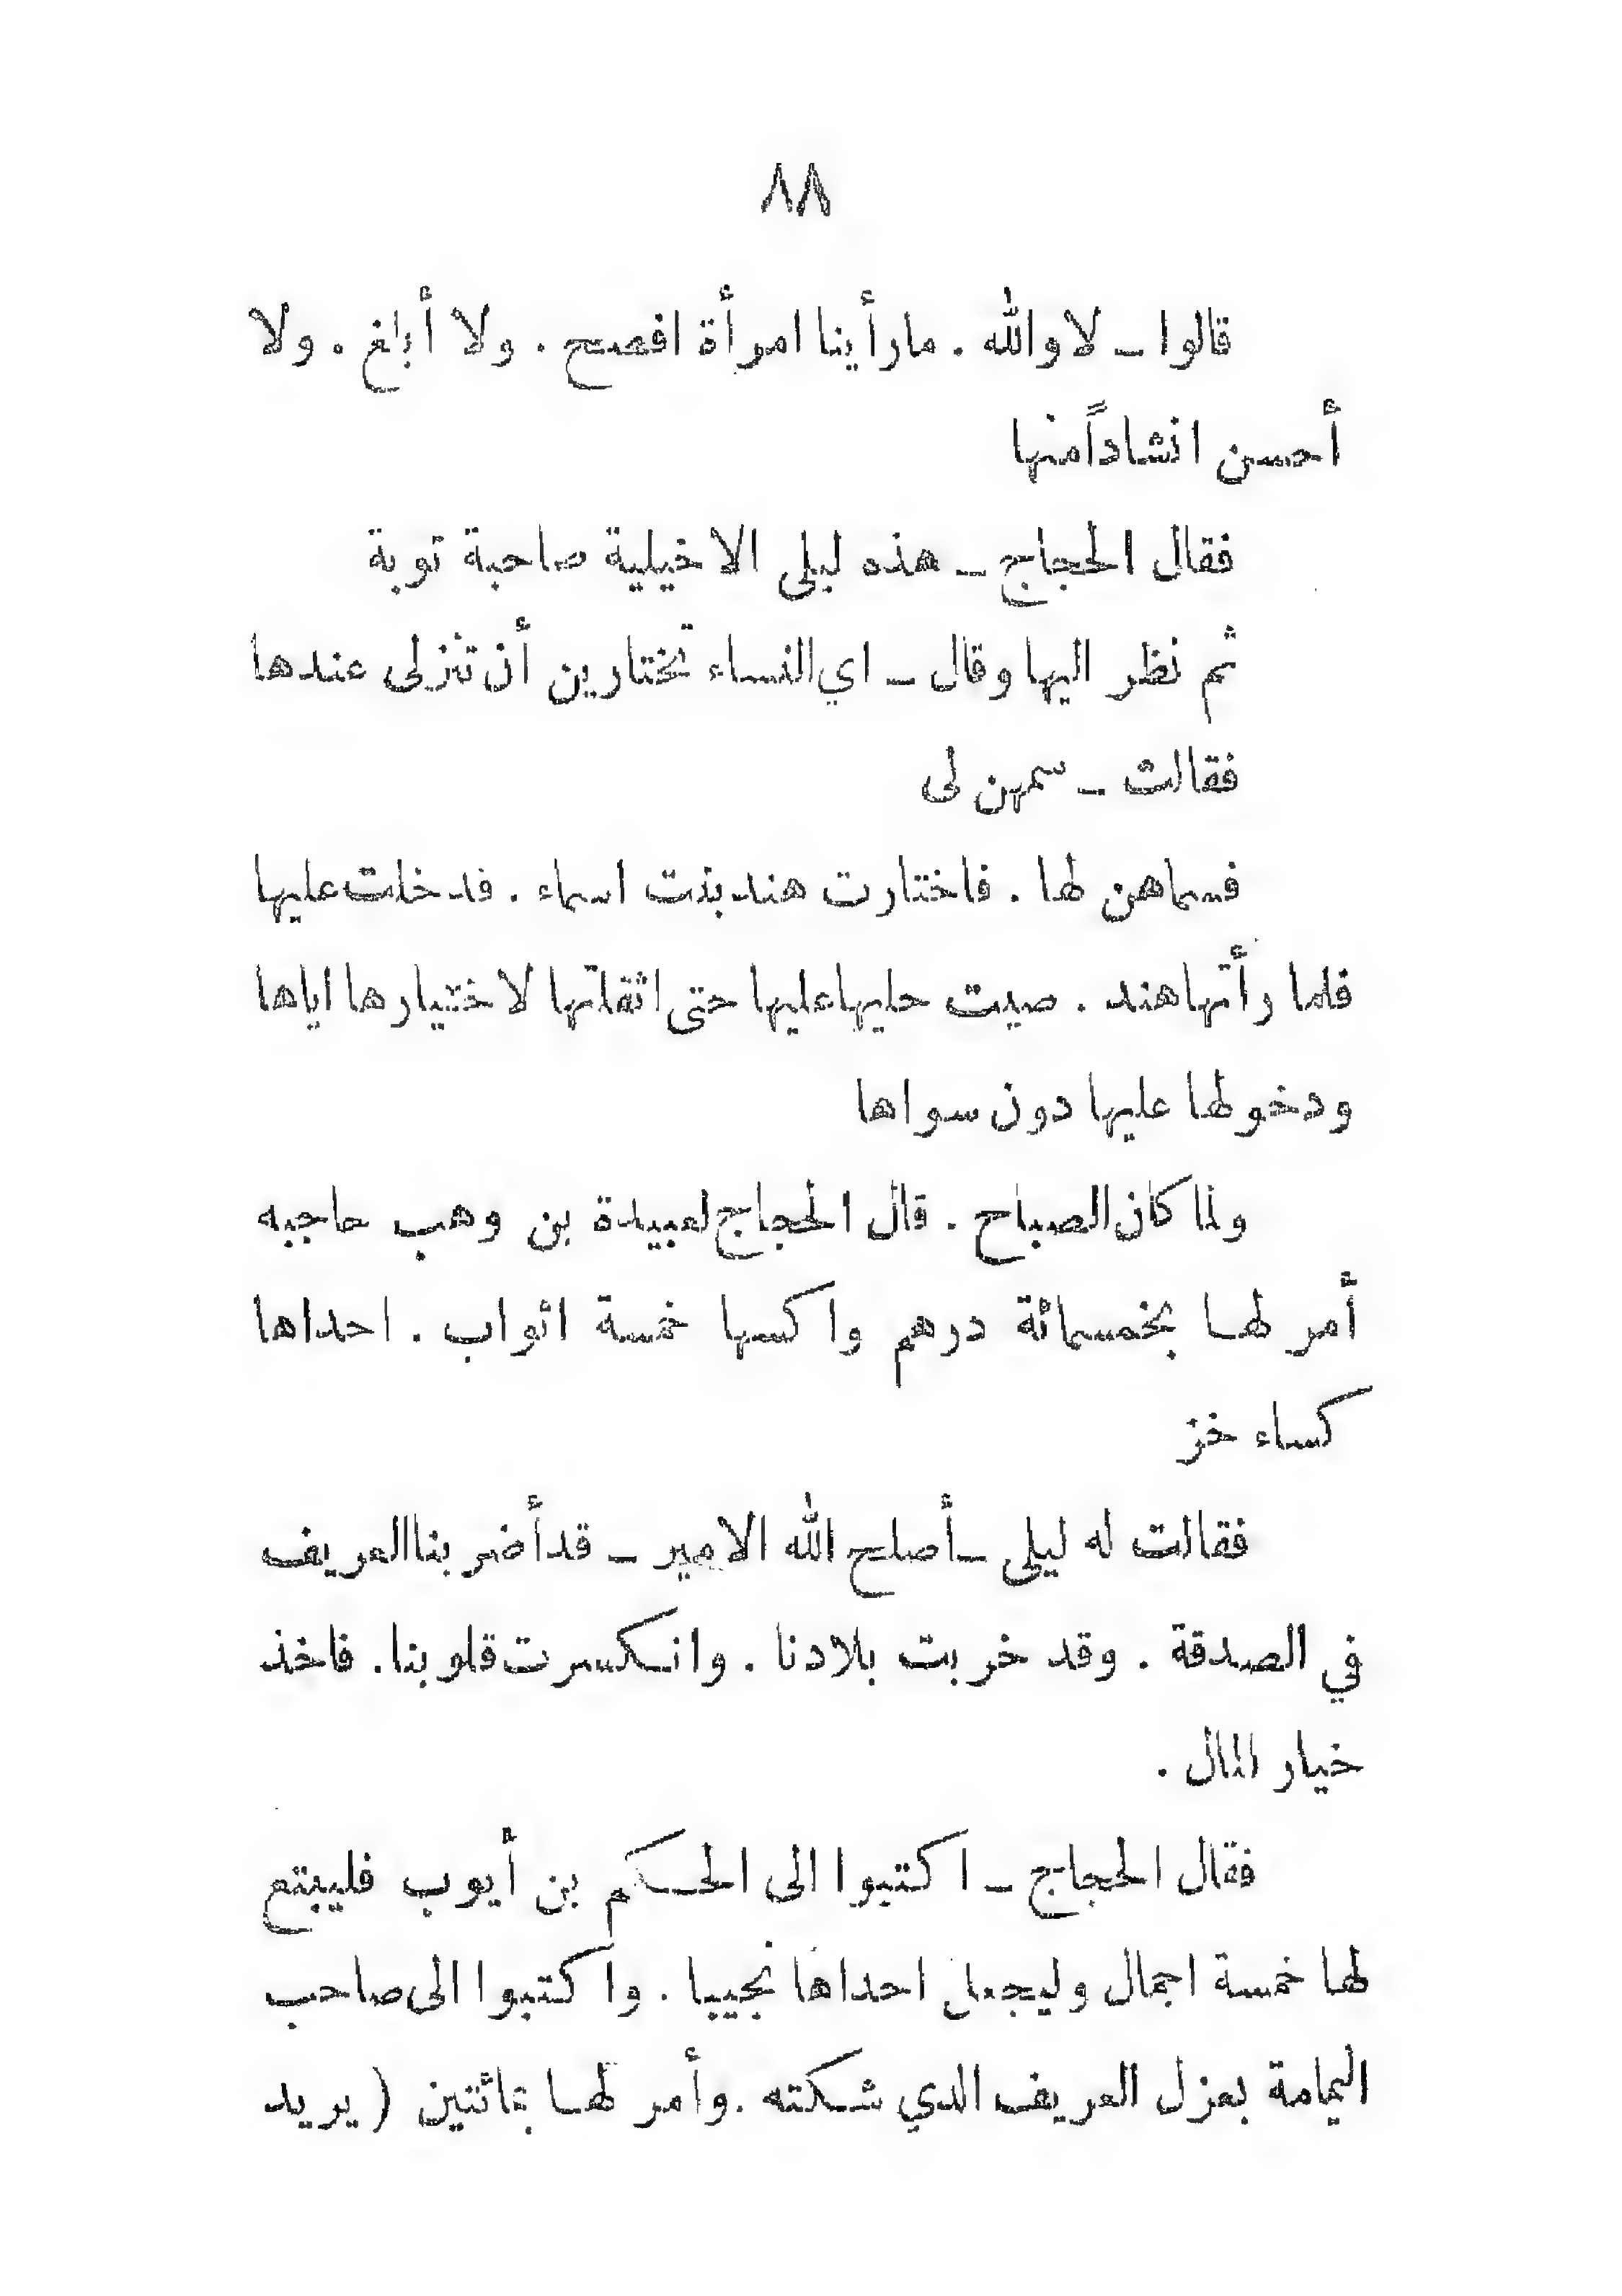 ٨٨
قالوا ـ لا والله . ما رأينا امرأة افصح . ولا أبلغ . ولا
أحسن انشاداً منها
فقال الحجاج ـ هذه ليلى الاخيلية صاحبة توبة
ثم نظر اليها وقال ـ اي النساء تختارين أن تنزلى عندها
فقالت ـ سمهن لى
فسماهن لها . فاختارت هند بنت اسماء . فدخلت عليها
فلما رأتها هند . صبت حليها عليها حتى اثقلتها لاختيارها اياها
ودخولها عليها دون سواها
ولما كان الصباح . قال الحجاج لعبيدة بن وهب حاجبه
أمر لها بخمسمائة درهم واكسها خمسة اثواب . احداها
كساء خز
فقالت له ليلى ـ أصلح الله الامير ـ قد أضر بنا العريف
في الصدقة . وقد خربت بلادنا . وانكسرت قلوبنا . فاخذ
خيار المال .
فقال الحجاج ـ اكتبوا الى الحكم بن أيوب فليبتع
لها خمسة اجمال وليجعل احداها نجيبا . واكتبوا الى صاحب
اليمامة بعزل العريف الذي شكته . وأمر لها بمائتين ( يريد